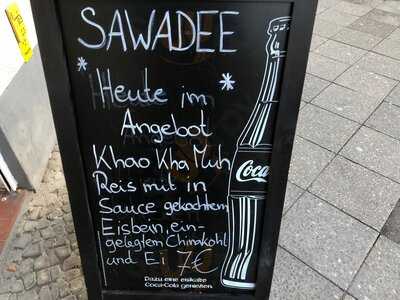 SAWADEE
* Heute im *
Angebot
Khao Kha Muh
Reis mit in
Sauce gekochtem
Eisbein, ein-
gelegtem Chinakohl
und Ei 7€
Coca
Dazu eine eiskalte
Coca-Cola genießen.